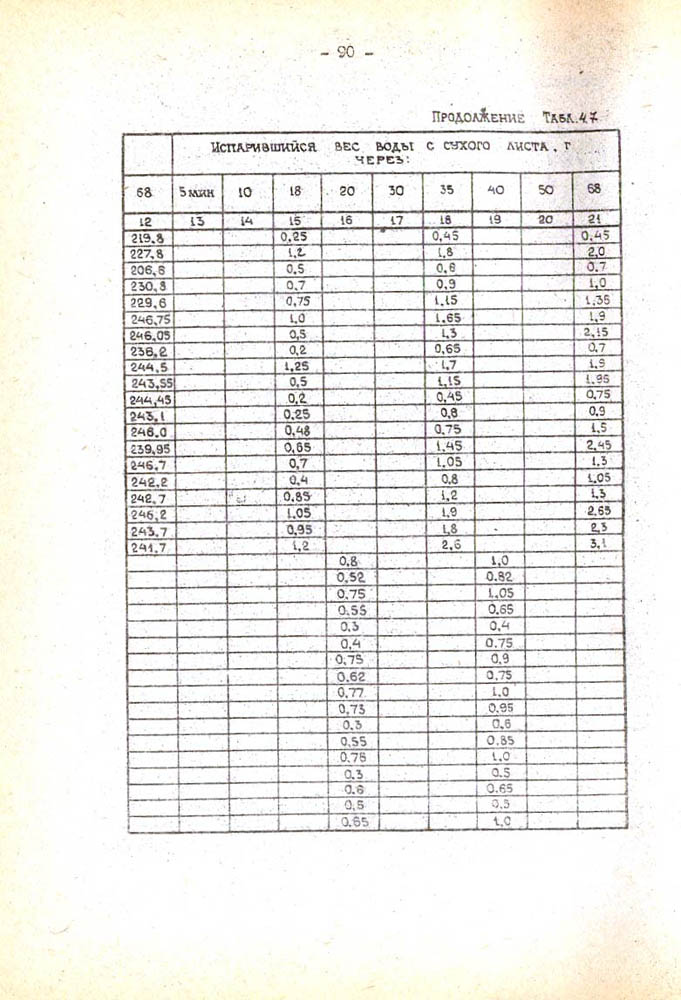 - 90 -
ПРОДОЛЖЕНИЕ ТАБЛ. 4.7
ИСПАРИВШИЙСЯ ВЕС ВОДЫ С СУХОГО ЛИСТА, Г
ЧЕРЕЗ:
68 5 МИН 10 18 20 30 35 40 50 68
12 13 14 15 16 17 18 19 20 21
219.8 0,25 0,45 0,45
227,8 1,2 1,8 2,0
206,6 0,5 0,6 0.7
230,8 0,7 0,9 1,0
229,6 0,75 1,15 1,35
246,75 1,0 1,65 1,9
246,05 0,5 1,3 2,15
236,2 0,2 0,65 0,7
244,5 1,25 1,7 1,9
243,55 0,5 1,15 1,95
244,45 0,2 0,45 0,75
243,1 0,25 0,8 0,9
246.0 0,48 0,75 1,5
239,95 0,65 1,45 2,45
246.7 0,7 1,05 1,3
242,2 0,4 0,8 1,05
242,7 0,85 1,2 1,3
246,2 1,05 1,9 2,65
243,7 0,95 1,8 2,3
241,7 1,2 2,6 3,1
0,8 1,0
0,52 0.82
0,75 1,05
0,55 0,65
0,3 0,4
0,4 0,75
0,75 0,9
0,62 0,75
0,77 1,0
0,73 0,95
0,3 0,6
0,55 0,85
0,75 1,0
0,3 0,5
0,6 0,65
0,5 0,5
0,65 1,0